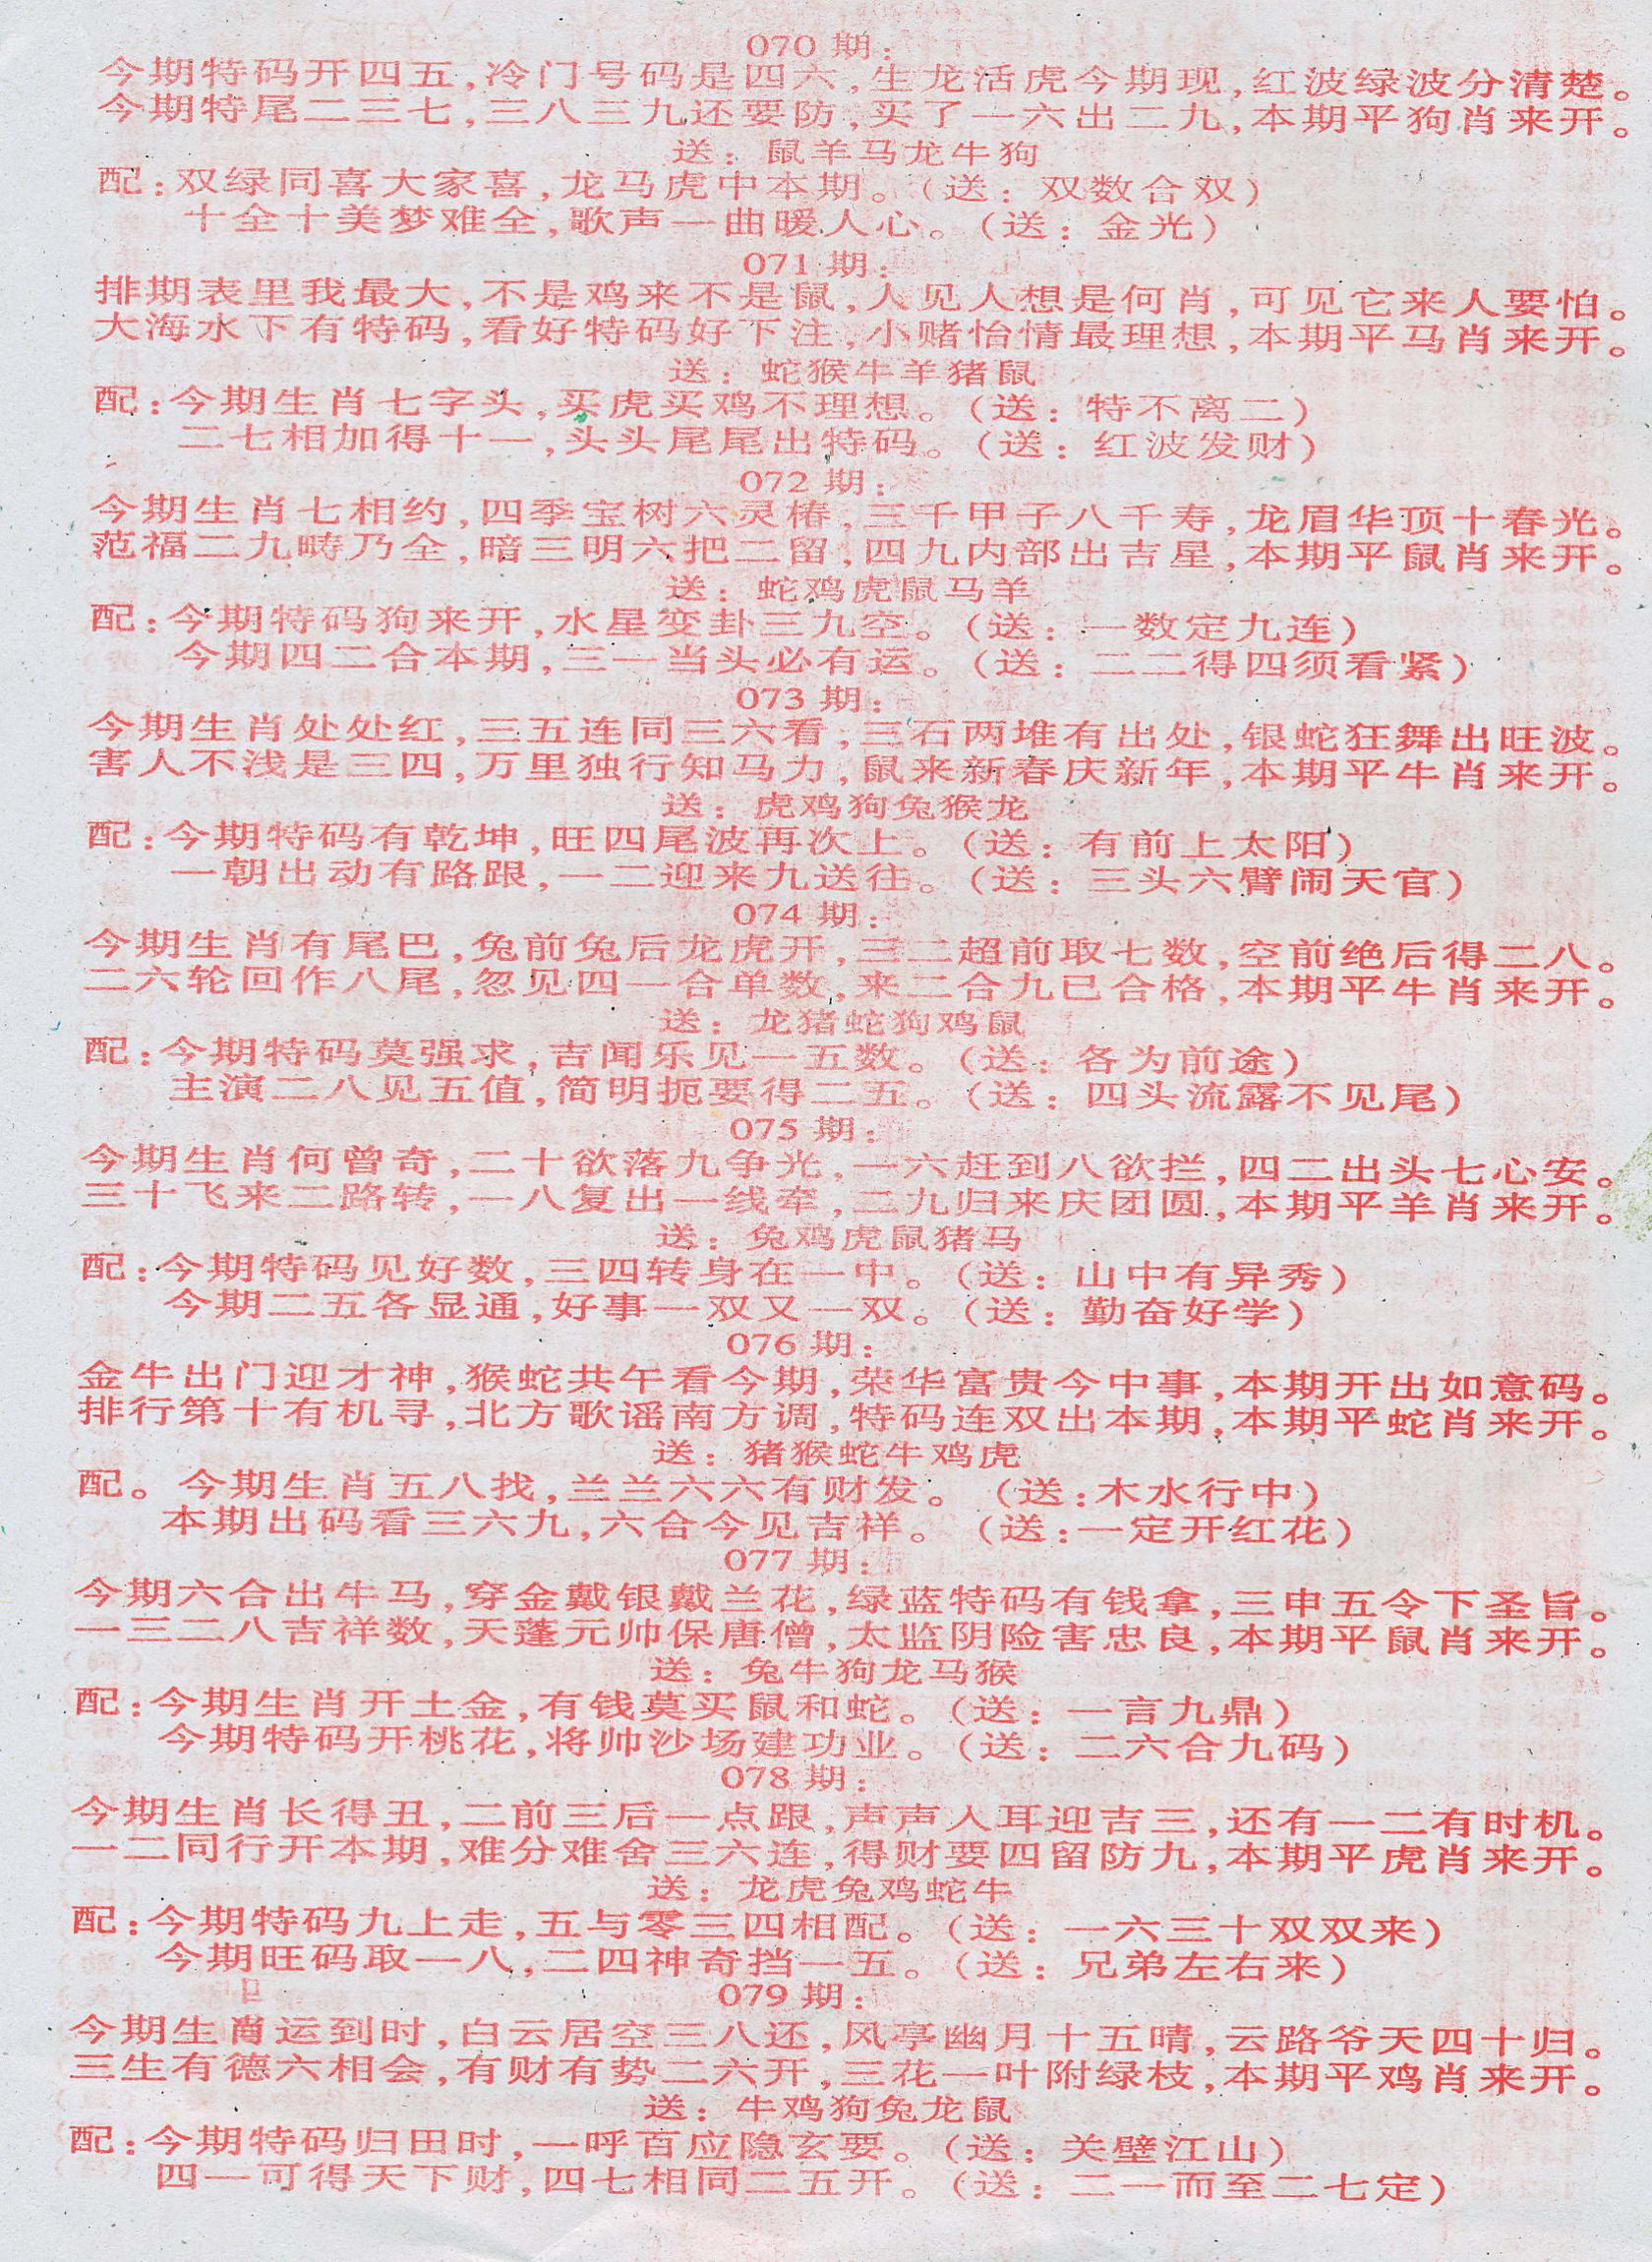 070 期:
今期特码开四五,冷门号码是四六,生龙活虎今期现,红波绿波分清楚。
今期特尾二三七,三八三九还要防,买了一六出二九,本期平狗肖来开。
送: 鼠羊马龙牛狗
配:双绿同喜大家喜,龙马虎中本期。(送: 双数合双)
十全十美梦难全,歌声一曲暖人心。(送: 金光)
071 期:
排期表里我最大,不是鸡来不是鼠,人见人想是何肖,可见它来人要怕。
大海水下有特码,看好特码好下注,小赌怡情最理想,本期平马肖来开。
送: 蛇猴牛羊猪鼠
配:今期生肖七字头,买虎买鸡不理想。(送: 特不离二)
二七相加得十一,头头尾尾出特码。(送: 红波发财)
072 期:
今期生肖七相约,四季宝树六灵椿,三千甲子八千寿,龙眉华顶十春光。
范福二九畴乃全,暗三明六把二留,四九内部出吉星,本期平鼠肖来开。
送: 蛇鸡虎鼠马羊
配:今期特码狗来开,水星变卦三九空。(送: 一数定九连)
今期四二合本期,三一当头必有运。(送: 二二得四须看紧)
073 期:
今期生肖处处红,三五连同三六看,三石两堆有出处,银蛇狂舞出旺波。
害人不浅是三四,万里独行知马力,鼠来新春庆新年,本期平牛肖来开。
送: 虎鸡狗兔猴龙
配:今期特码有乾坤,旺四尾波再次上。(送: 有前上太阳)
一朝出动有路跟,一二迎来九送往。(送: 三头六臂闹天官)
074 期:
今期生肖有尾巴,兔前兔后龙虎开,三二超前取七数,空前绝后得二八。
二六轮回作八尾,忽见四一合单数,来二合九已合格,本期平牛肖来开。
送: 龙猪蛇狗鸡鼠
配:今期特码莫强求,吉闻乐见一五数。(送: 各为前途)
主演二八见五值,简明扼要得二五。(送: 四头流露不见尾)
075 期:
今期生肖何曾奇,二十欲落九争光,一六赶到八欲拦,四二出头七心安。
三十飞来二路转,一八复出一线牵,二九归来庆团圆,本期平羊肖来开。
送: 兔鸡虎鼠猪马
配:今期特码见好数,三四转身在一中。(送: 山中有异秀)
今期二五各显通,好事一双又一双。(送: 勤奋好学)
076 期:
金牛出门迎才神,猴蛇共午看今期,荣华富贵今中事,本期开出如意码。
排行第十有机寻,北方歌谣南方调,特码连双出本期,本期平蛇肖来开。
送: 猪猴蛇牛鸡虎
配。今期生肖五八找,兰兰六六有财发。(送:木水行中)
本期出码看三六九,六合今见吉祥。(送:一定开红花)
077 期:
今期六合出牛马,穿金戴银戴兰花,绿蓝特码有钱拿,三申五令下圣旨。
一三二八吉祥数,天蓬元帅保唐僧,太监阴险害忠良,本期平鼠肖来开。
送: 兔牛狗龙马猴
配:今期生肖开土金,有钱莫买鼠和蛇。(送: 一言九鼎)
今期特码开桃花,将帅沙场建功业。(送: 二六合九码)
078 期:
今期生肖长得丑,二前三后一点跟,声声人耳迎吉三,还有一二有时机。
一二同行开本期,难分难舍三六连,得财要四留防九,本期平虎肖来开。
送: 龙虎兔鸡蛇牛
配:今期特码九上走,五与零三四相配。(送: 一六三十双双来)
今期旺码取一八,二四神奇挡一五。(送: 兄弟左右来)
079 期:
今期生肖运到时,白云居空三八还,风亭幽月十五晴,云路爷天四十归。
三生有德六相会,有财有势二六开,三花一叶附绿枝,本期平鸡肖来开。
送: 牛鸡狗兔龙鼠
配:今期特码归田时,一呼百应隐玄要。(送: 关壁江山)
四一可得天下财,四七相同二五开。(送: 二一而至二七定)